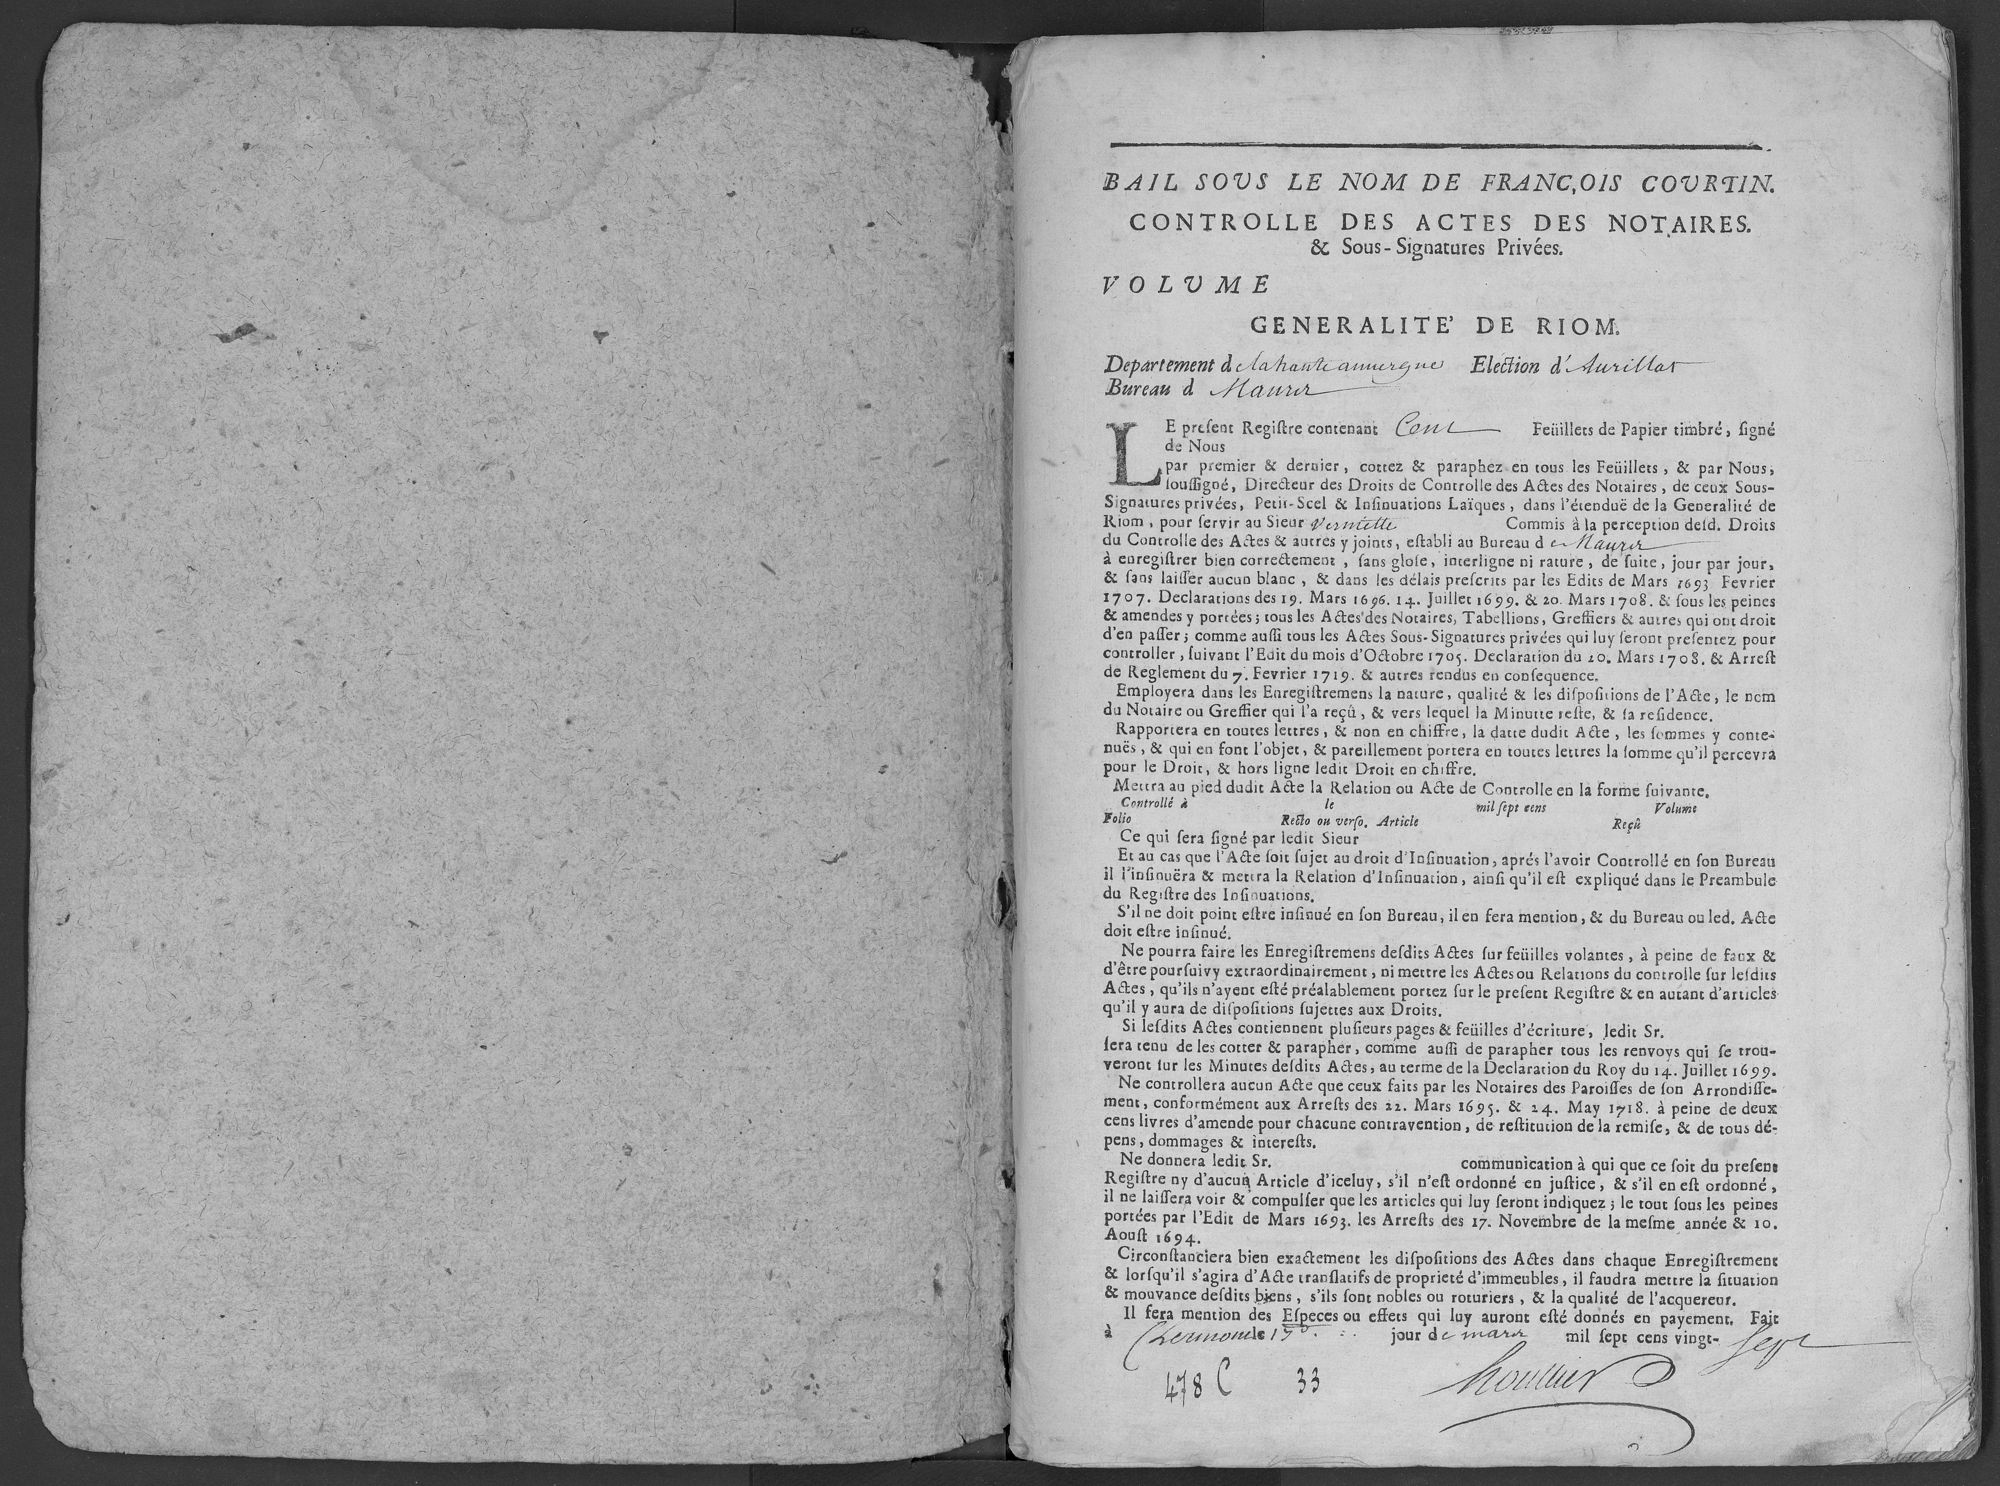 BAIL SOUS LE NOM DE FRANC,OIS COURTIN.
CONTROLLE DES ACTES DES NOTAIRES.
& Sous-Signatures Privées.
VOLUME
GENERALITE' DE RIOM.
Departement de la haute auvergne Election d'Aurillac
Bureau d Maurs
LE present Registre contenant Cent Feüillets de Papier timbré, signé
de Nous
par premier & dernier, cottez & paraphez en tous les Feüillets, & par Nous,
soussigné, Directeur des Droits de Controlle des Actes des Notaires, de ceux Sous-
Signatures privées, Petit-Scel & Insinuations Laïques, dans l'étenduë de la Generalité de
Riom, pour servir au Sieur Vermette Commis à la perception desd. Droits
du Controlle des Actes & autres y joints, establi au Bureau de Maurs
à enregistrer bien correctement, sans glose, interligne ni rature, de suite, jour par jour,
& sans laisser aucun blanc, & dans les délais prescrits par les Edits de Mars 1693 Fevrier
1707. Declarations des 19. Mars 1696. 14. Juillet 1699. & 20. Mars 1708. & sous les peines
& amendes y portées; tous les Actes des Notaires, Tabellions, Greffiers & autres qui ont droit
d'en passer; comme aussi tous les Actes Sous-Signatures privées qui luy seront presentez pour
controller, suivant l'Edit du mois d'Octobre 1705. Declaration du 20. Mars 1708. & Arrest
de Reglement du 7. Fevrier 1719. & autres rendus en consequence.
Employera dans les Enregistremens la nature, qualité & les dispositions de l'Acte, le nom
du Notaire ou Greffier qui l'a reçû, & vers lequel la Minutte reste, & sa residence.
Rapportera en toutes lettres, & non en chiffre, la datte dudit Acte, les sommes y conte-
nuës, & qui en font l'objet, & pareillement portera en toutes lettres la somme qu'il percevra
pour le Droit, & hors ligne ledit Droit en chiffre.
Mettra au pied dudit Acte la Relation ou Acte de Controlle en la forme suivante.
Controllé à le mil sept cens Volume
Folio Recto ou verso. Article Reçû
Ce qui sera signé par ledit Sieur
Et au cas que l'Acte soit sujet au droit d'Insinuation, aprés l'avoir Controllé en son Bureau
il l'insinuëra & mettra la Relation d'Insinuation, ainsi qu'il est expliqué dans le Preambule
du Registre des Insinuations.
S'il ne doit point estre insinué en son Bureau, il en fera mention, & du Bureau ou led. Acte
doit estre insinué.
Ne pourra faire les Enregistremens desdits Actes sur feüilles volantes, à peine de faux &
d'être poursuivy extraordinairement, ni mettre les Actes ou Relations du controlle sur lesdits
Actes, qu'ils n'ayent esté préalablement portez sur le present Registre & en autant d'articles
qu'il y aura de dispositions sujettes aux Droits.
Si lesdits Actes contiennent plusieurs pages & feüilles d'écriture, ledit Sr.
sera tenu de les cotter & parapher, comme aussi de parapher tous les renvoys qui se trou-
veront sur les Minutes desdits Actes, au terme de la Declaration du Roy du 14. Juillet 1699.
Ne controllera aucun Acte que ceux faits par les Notaires des Paroisses de son Arrondisse-
ment, conformément aux Arrests des 22. Mars 1695. & 24. May 1718. à peine de deux
cens livres d'amende pour chacune contravention, de restitution de la remise, & de tous dé-
pens, dommages & interests.
Ne donnera ledit Sr. communication à qui que ce soit du present
Registre ny d'aucun Article d'iceluy, s'il n'est ordonné en justice, & s'il en est ordonné,
il ne laissera voir & compulser que les articles qui luy seront indiquez; le tout sous les peines
portées par l'Edit de Mars 1693. les Arrests des 17. Novembre de la mesme année & 10.
Aoust 1694.
Circonstanciera bien exactement les dispositions des Actes dans chaque Enregistrement
& lorsqu'il s'agira d'Acte translatifs de proprieté d'immeubles, il faudra mettre la situation
& mouvance desdits biens, s'ils sont nobles ou roturiers, & la qualité de l'acquereur.
Il fera mention des Especes ou effets qui luy auront esté donnés en payement. Fait
à Clermont le jour de mars mil sept cens vingt-sept
478 C 33